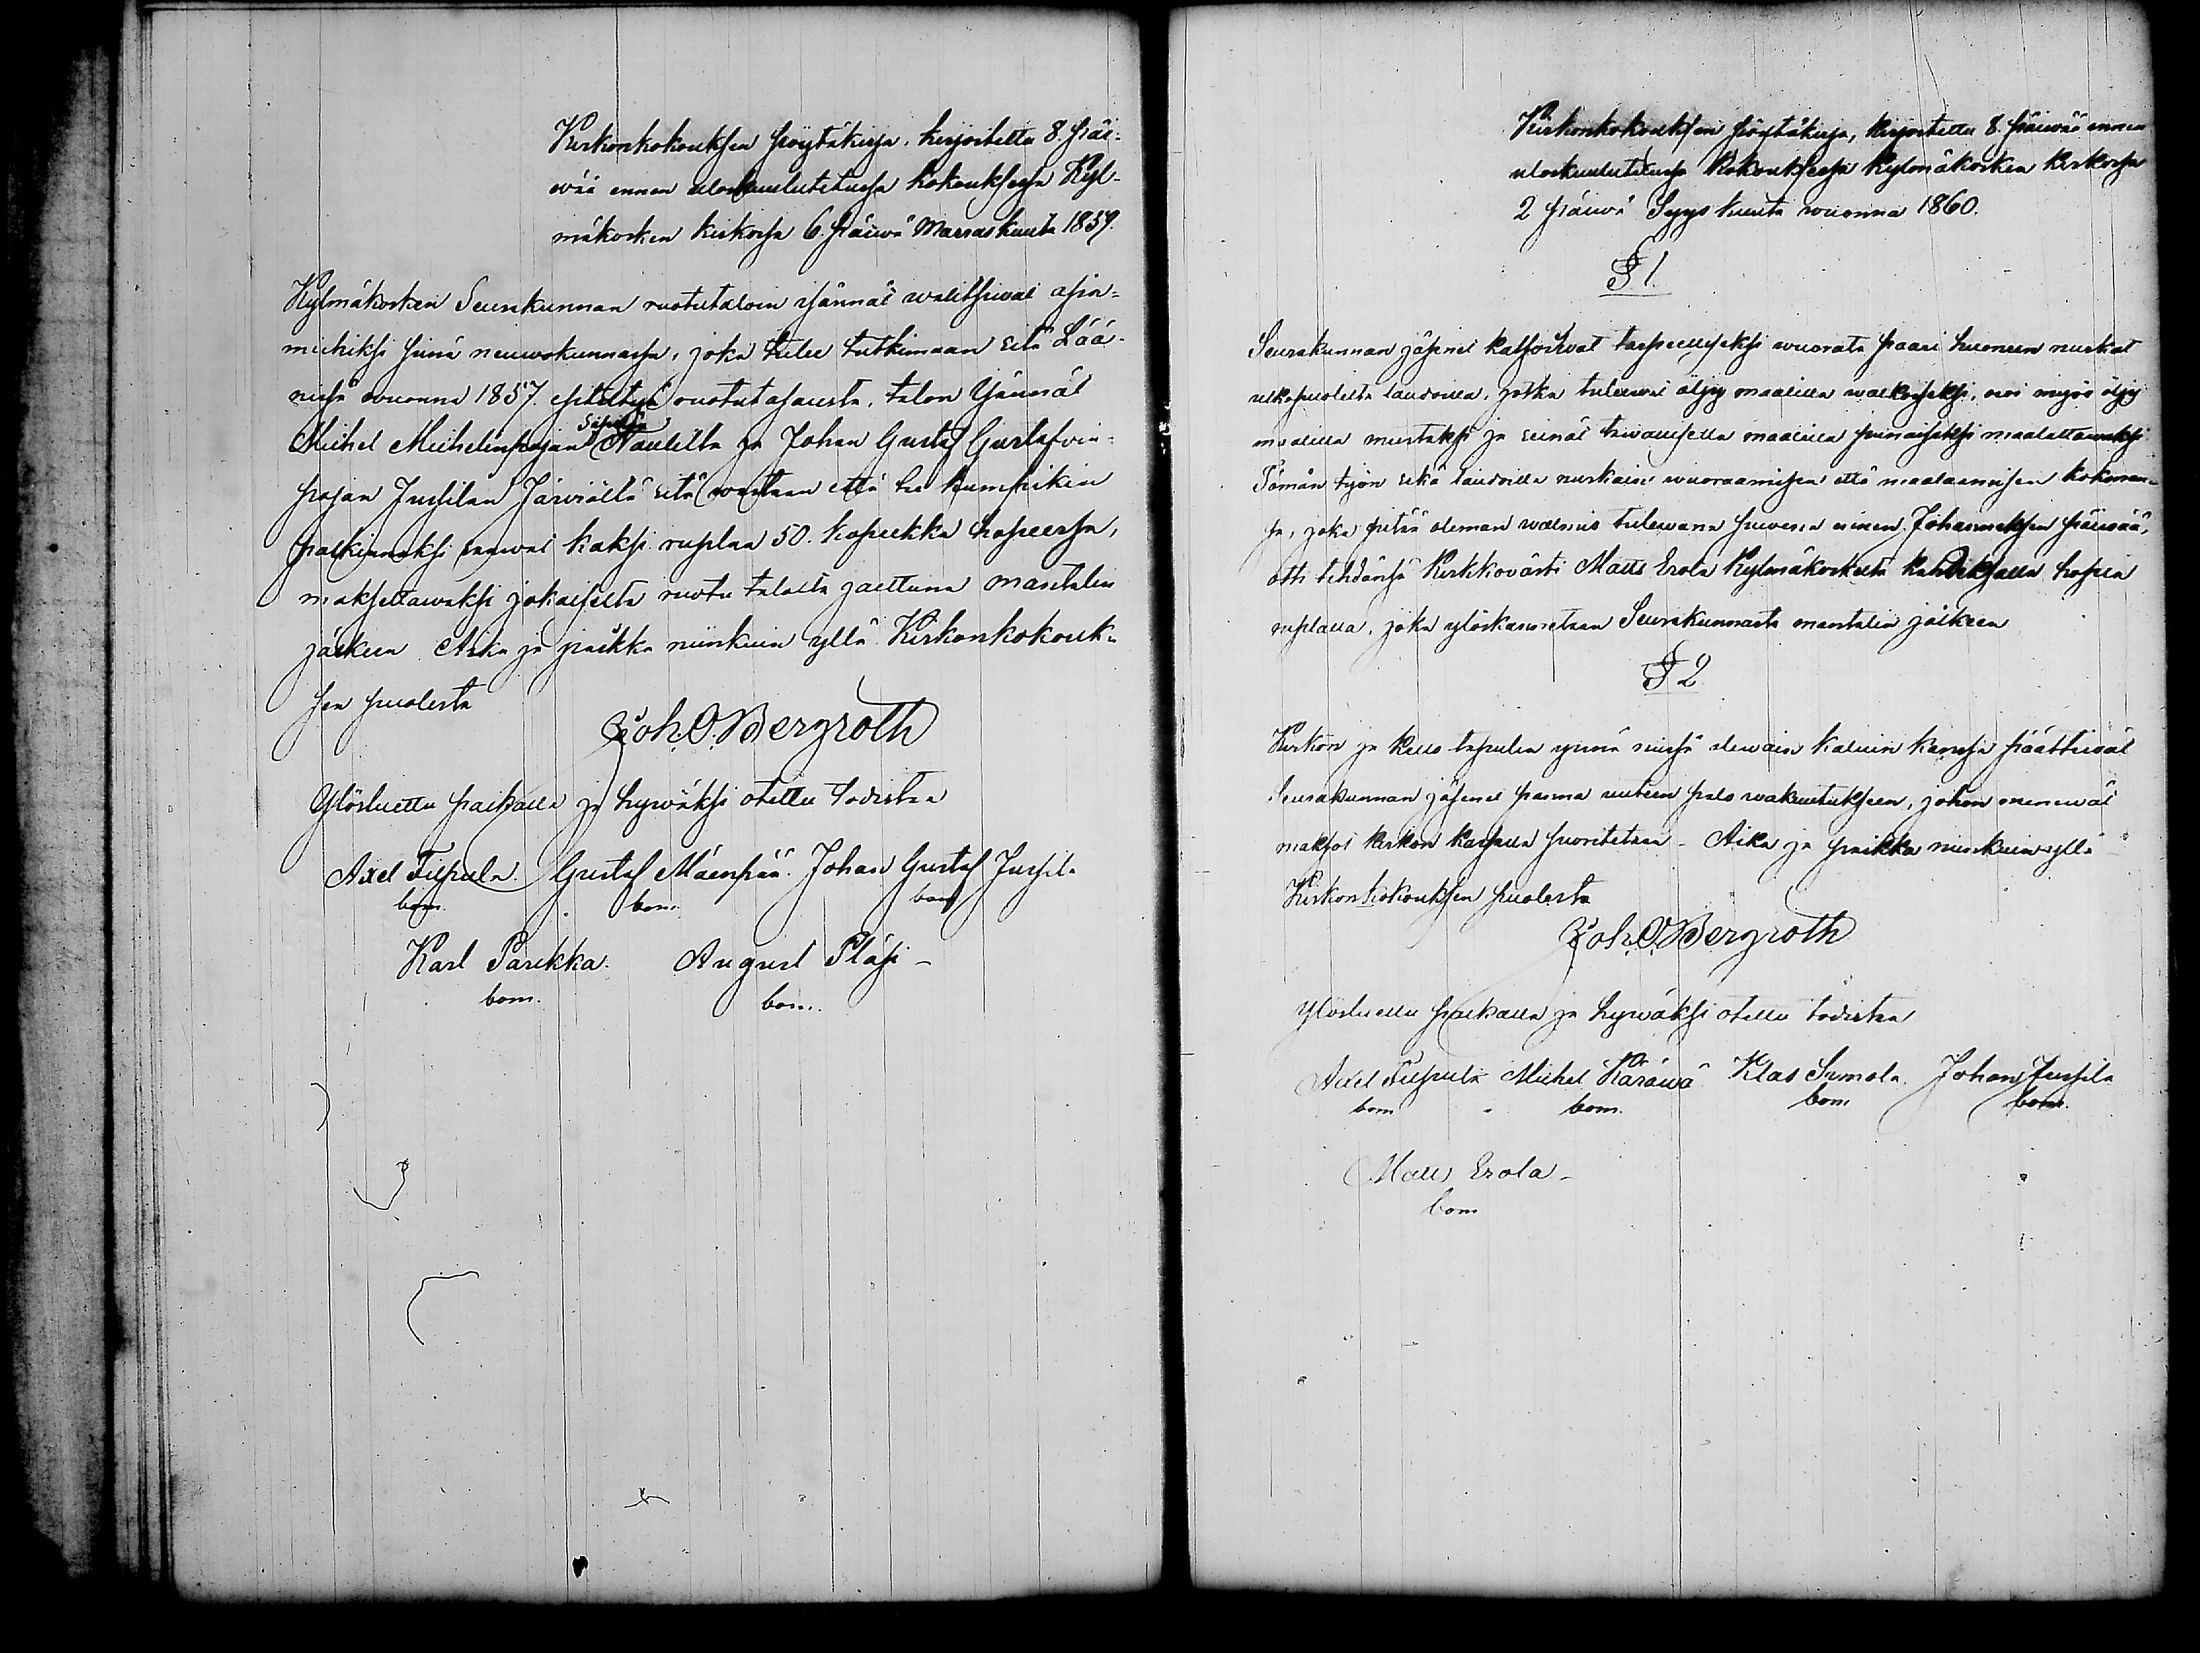 Kirkonkokouksen pöytäkirja, kirjoitettu 8. päi-
wää ennen uloskuulutetussa kokouksessa Kyl-
mäkosken kirkossa 6. päiwä Marraskuuta 1859.
Kylmäkosken Seurakunnan ruotutaloin isännät walitsiwat asia-
miehiksi siinä neuwokunnassa, joka tulee tutkimaan sitä Lää-
nissä wuonna 1857. esitettyä ruotutasausta, talon isännät
Michel Michelinpojan Naulilta ja Johan Gustaf Gustafvin-
pojan Jussilan Järviältä sitä wastaan että he kumpikin
palkinnoksi saawat kaksi ruplaa 50. kopeekka hopeessa,
maksettawaksi jokaiselta ruotu talolta jaettuna mantalin
jälkeen Aika ja paikka niinkuin yllä. Kirkonkokouk-
sen puolesta
Joh. O. Bergroth
Ylösluettu paikalla ja hywäksi otettu todistaa
Axel Tiipula. Gustaf Mäenpää. Johan Gustaf Jussila
bom. bom. bom
Karl Parikka. August Pläsi -
bom. bom.
Kirkonkokouksen pöytäkirja, kirjoitettu 8. päiwää ennen
uloskuulutetussa Kokouksessa Kylmäkosken Kirkossa
2 päiwä Syyskuuta wuonna 1860.
§ 1.
Seurakunnan jäsenet katsoiwat tarpeelliseksi wuorata paari huoneen nurkat
ulkopuolelta laudoilla, jotka tulewat öljy maalilla walkoiseksi, owi myös öljy
maalilla mustaksi ja seinät tawallisella maalilla punaiseksi maalattawaksi.
Tämän työn sekä laudoilla nurkain wuoraamisen että maalaamisen kokonan-
sa, joka pitää oleman walmis tulewana suwena ennen Johanneksen päiwää,
otti tehdänsä Kirkkovärti Matts Erola Kylmäkoskelta kahdeksalla hopea
ruplalla, joka ylöskannetaan Seurakunnasta mantalin jälkeen
§ 2
Kirkon ja kello tapulin ynnä niissä olewain kaluin kanssa päättiwät
Seurakunnan jäsenet panna uuteen palo wakuutukseen, johon menewät
maksot kirkon kassalla suoritetaan - Aika ja paikka niinkuin yllä -
Kirkonkokouksen puolesta
Joh. O. Bergroth
Ylösluettu paikalla ja hywäksi otettu todistaa
Axel Tiipula Michel Käräwä Klas Simola. Johan Jussila
bom bom. bom bom.
Matts Erola -
bom